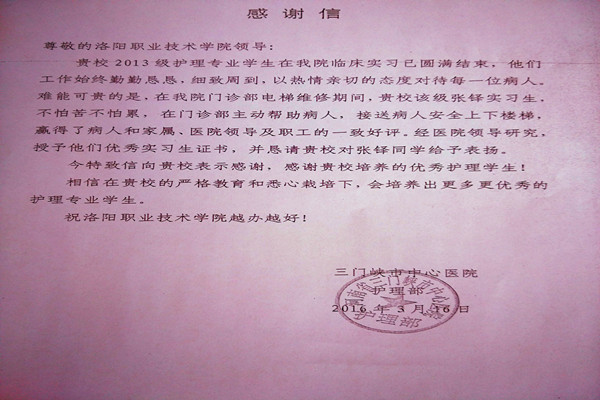 感谢信
尊敬的洛阳职业技术学院领导:
贵校2013级护理专业学生在我院临床实习已圆满结束，他们
工作始终勤勤恳恳，细致周到，以热情亲切的态度对待每一位病人。
难能可贵的是，在我院门诊部电梯维修期间，贵校该级张铎实习生，
不怕苦不怕累，在门诊部主动帮助病人，接送病人安全上下楼梯，
赢得了病人和家属、医院领导及职工的一致好评。经医院领导研究，
授予他们优秀实习生证书，并恳请贵校对张铎同学给予表扬。
今特致信向贵校表示感谢，感谢贵校培养的优秀护理学生！
相信在贵校的严格教育和悉心栽培下，会培养出更多更优秀的
护理专业学生。
祝洛阳职业技术学院越办越好！
三门峡市中心医院
护理部
2016年3月16日
河南省三门峡市中心医院
护理部